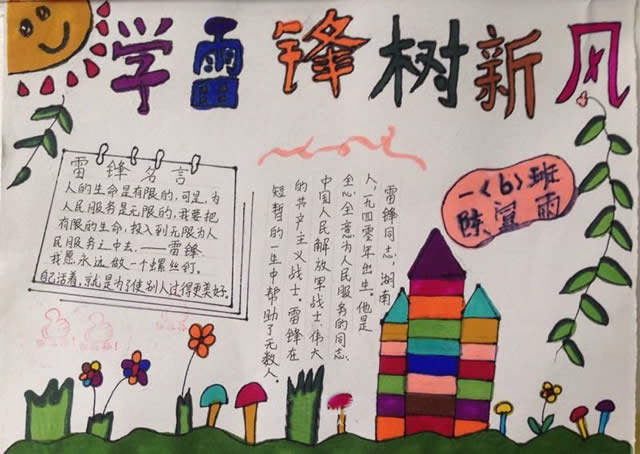 学雷锋树新风
雷锋名言
人的生命是有限的,可是,为
人民服务是无限的,我要把
有限的生命,投入到无服为人
民服务之中去。——雷锋
我愿永远做一个螺丝钉。
自己活着,就是为了使别人过得更美好。
雷锋同志,湖南
人,一九四零年出生。他是
全心全意为人民服务的同志,
中国人民解放军战士伟大
的共产主义战士。雷锋在
短暂的一生中帮助了无数人。
一(6)班
雨